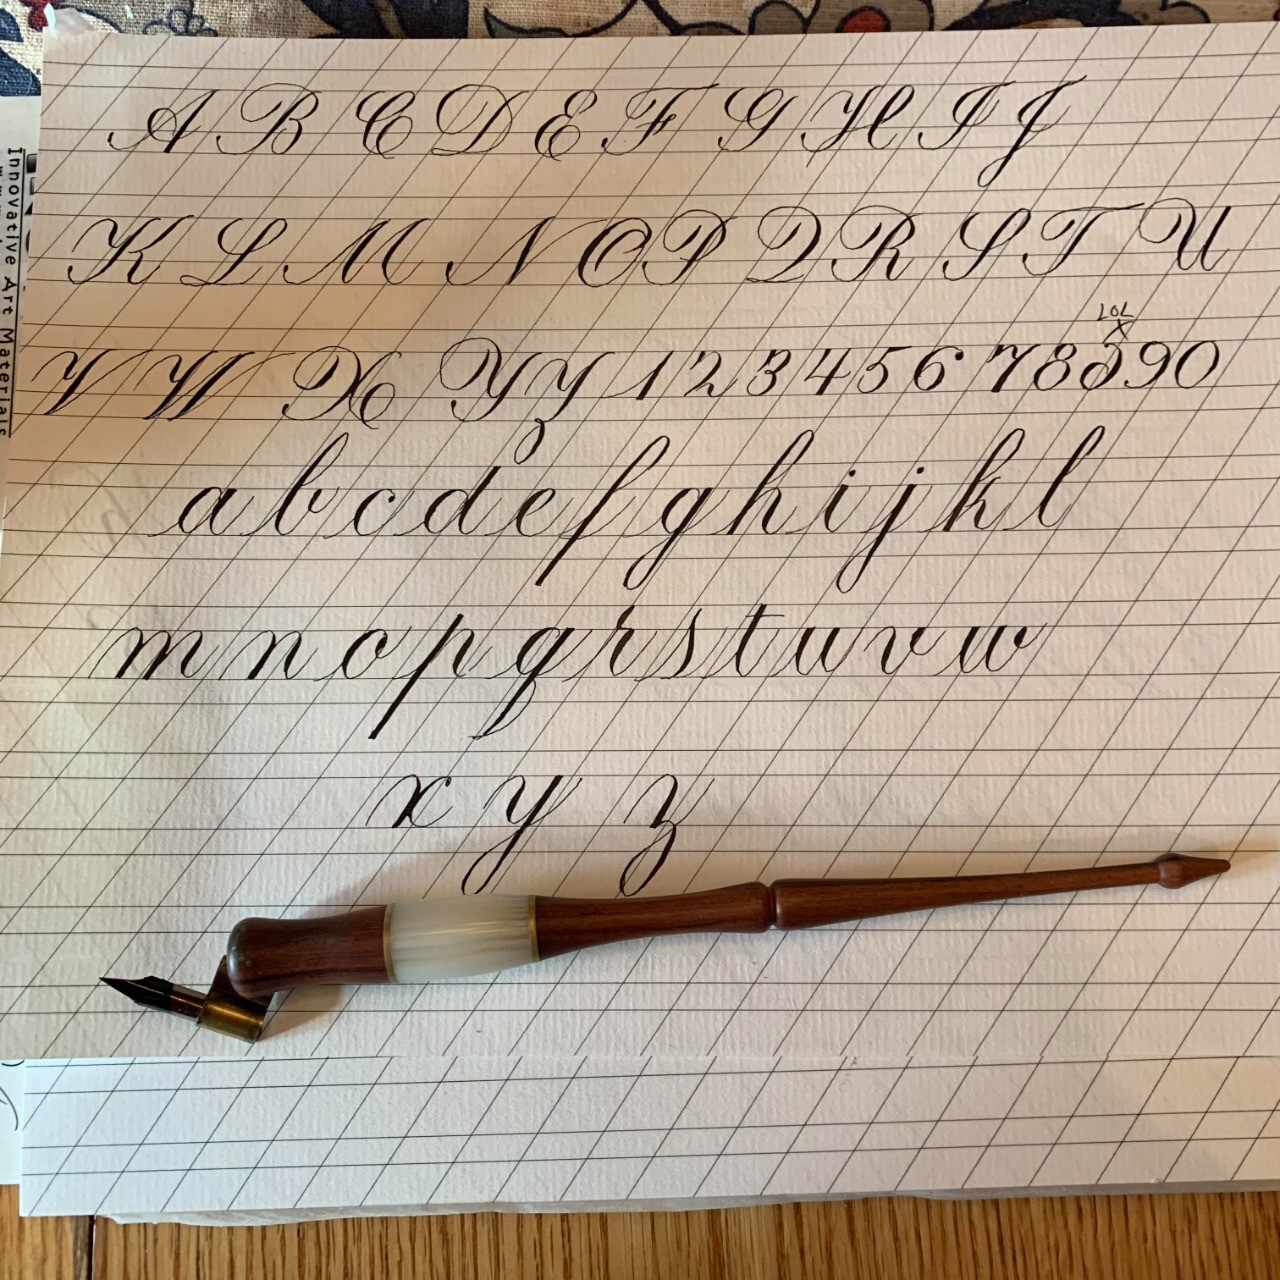 A B C D E F G H I J
K L M N O P Q R S T U
LOL
x
V W X Y Z 1 2 3 4 5 6 7 8 9 0
a b c d e f g h i j k l
m n o p q r s t u v w
x y z
Innovative Art Materials